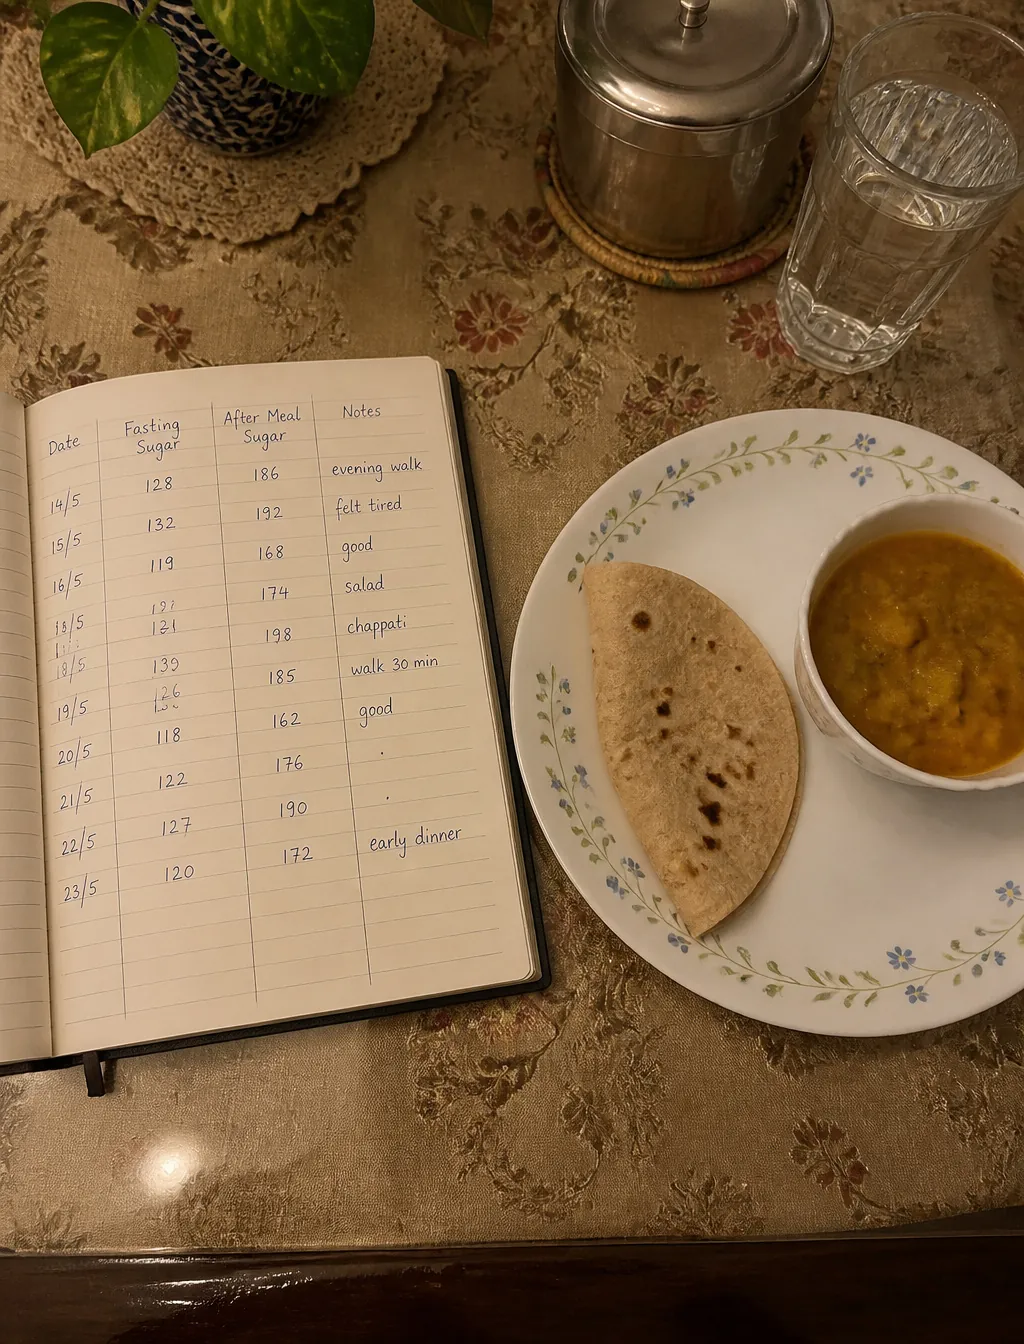 Date Fasting Sugar After Meal Sugar Notes
14/5 128 186 evening walk
15/5 132 192 felt tired
16/5 119 168 good
121 174 salad
18/5 139 198 chappati
19/5 185 walk 30 min
20/5 118 162 good
21/5 122 176 .
22/5 127 190 .
23/5 120 172 early dinner